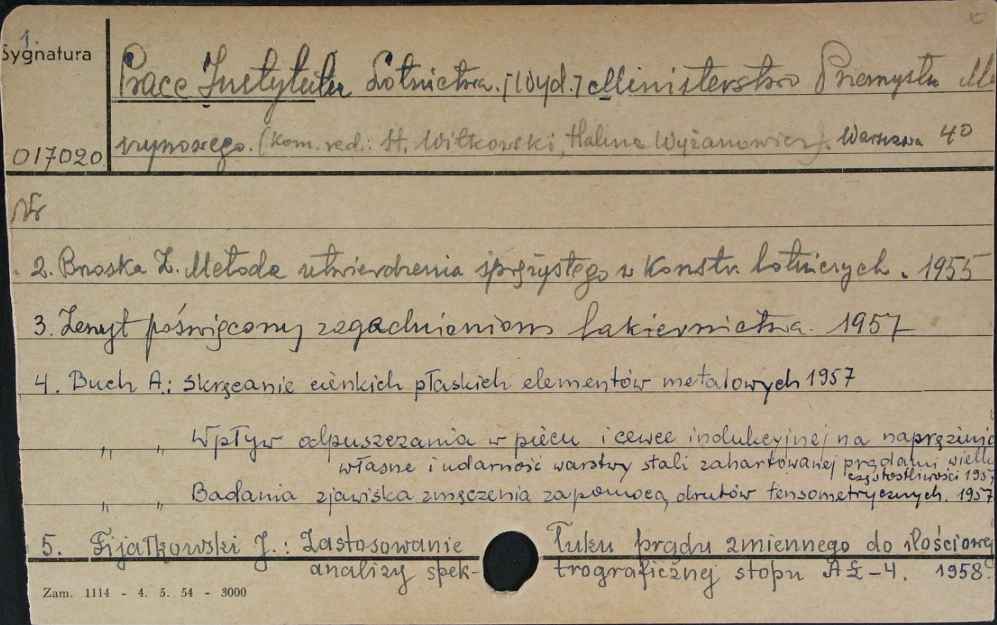 Sygnatura
1.
Prace Instytutu Lotnictwa. /Wyd./ Ministerstwo Przemysłu Ma
szynowego. (Kom. red.: St. Witkowski, Halina Wyżanowicz). Warszawa 4°
017020
Nr
2. Brzoska Z. Metoda utwierdzenia sprężystego w konstr. lotniczych. 1955
3. Zeszyt poświęcony zagadnieniom lakiernictwa. 1957
4. Buch A.: Skręcanie cienkich płaskich elementów metalowych 1957
" " Wpływ odpuszczania w piecu i cewce indukcyjnej na naprężenia
własne i udarność warstwy stali zahartowanej prądami wielk
częstostliwości 1957
" " Badania zjawiska zmęczenia zapomocą drutów tensometrycznych. 1957
5. Fijałkowski J.: Zastosowanie łuku prądu zmiennego do ilościowej
analizy spek- trograficznej stopu AŁ-4. 1958.
Zam. 1114 - 4. 5. 54 - 3000